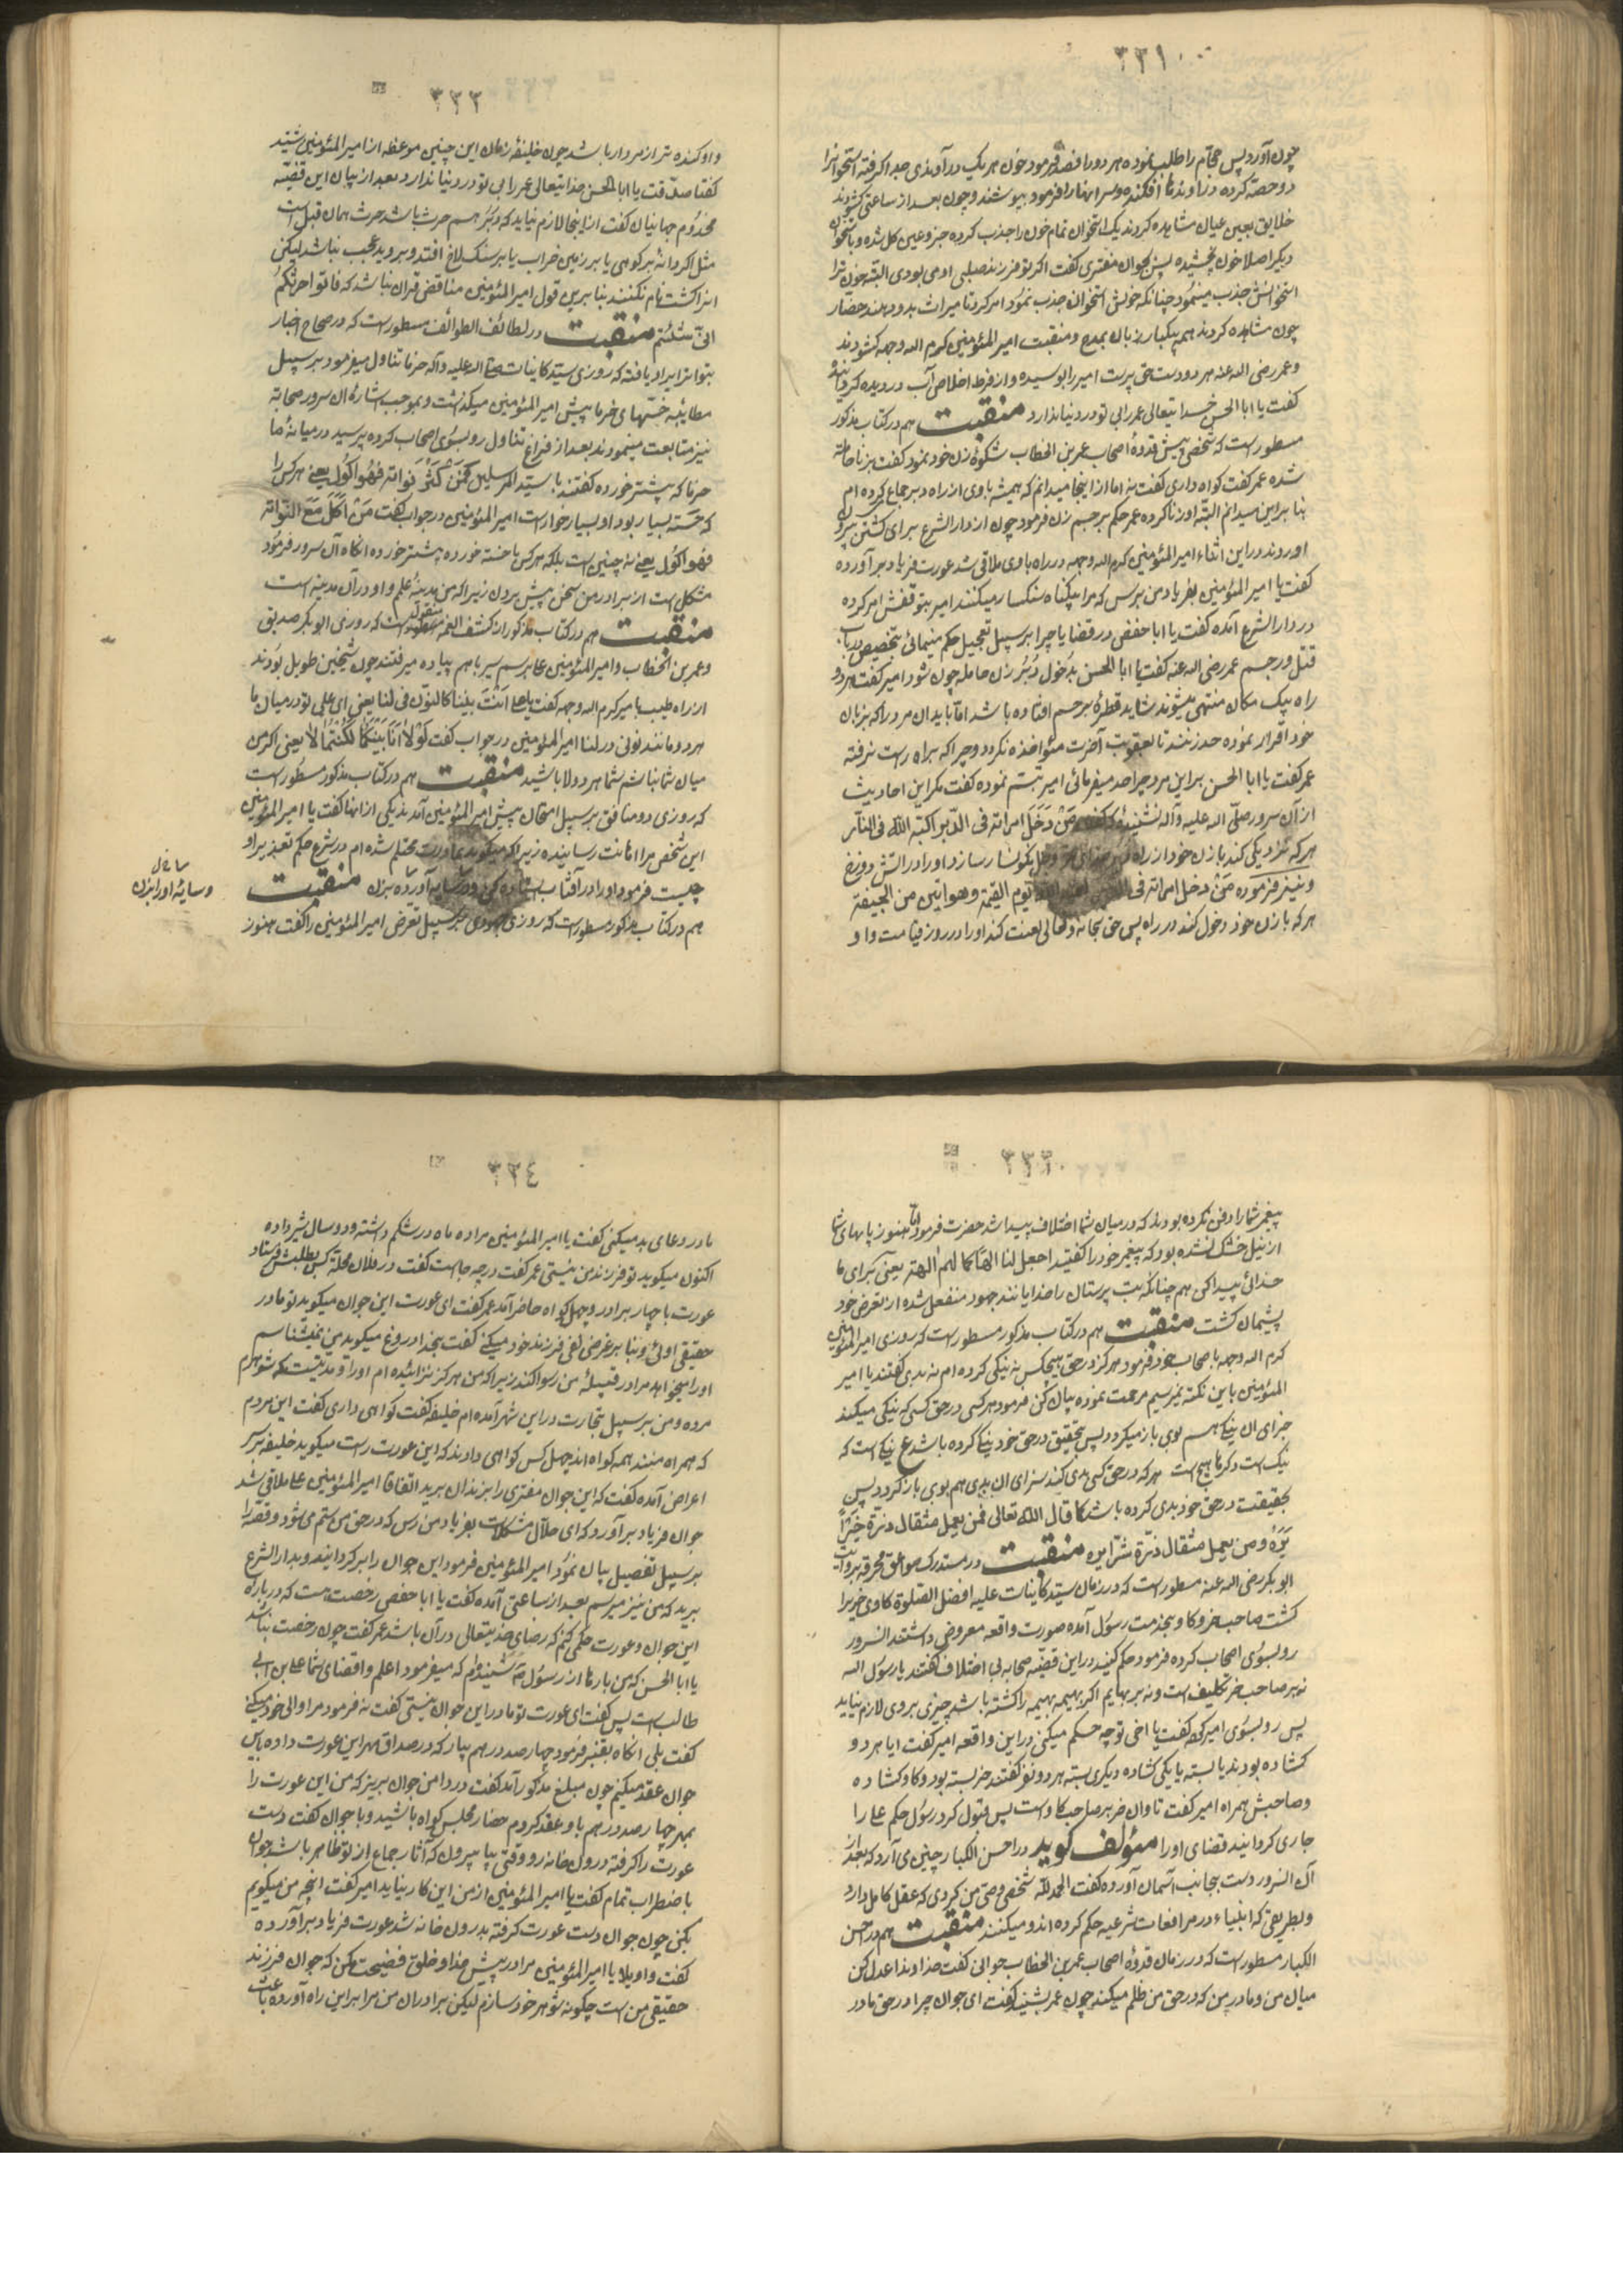 ٣٣١
چون آورد پس حجام را طلب نموده هر دو را فصد فرمود خون هر یک در آوندی جدا گرفته استخوانرا
دو حصه کرده در آوندها افکنده و سر انها را فرمود بپوشند و چون بعد از ساعتی گشودند
خلایق بعین عیان مشاهده کردند یک استخوان تمام خون را جذب کرده جزو عین کل شده و باستخوان
دیگر اصلا خون نچشیده پس بجوان مفتری گفت اگر تو فرزند صلبی او می بودی البته خون ترا
استخوانش جذب مینمود چنانکه خونش استخوان جذب نمود امر کرد تا میراث بدو دهند حضار
چون مشاهده کردند همه یکبار زبان بمدح و منقبت امیر المؤمنین کرم الله وجهه گشودند
و عمر رضی الله عنه هر دو دست حق پرست امیر را بوسیده و از فرط اخلاص آب در دیده گردانیده
گفت یا ابا الحسن خدایتعالی عمر را بی تو در دنیا نذارد منقبت هم در کتاب مذکور
مسطور است که شخصی پیش قدوهٔ اصحاب عمر بن الخطاب شکوهٔ زن خود نمود گفت بزنا حامله
شده عمر گفت گواه داری گفت نه اما از اینجا میدانم که همیشه با وی از راه دبر جماع کرده ام
بنا برین میدانم البته او زنا کرده عمر حکم برجم زن فرمود چون از دار الشرع برای کشتن بیرون
اوردند در این اثناء امیر المؤمنین کرم الله وجهه در راه با وی ملاقی شد عورت فریاد بر آورده
گفت یا امیر المؤمنین بفریاد من برس که مرا بیگناه سنگسار میکنند امیر بتوقفش امر کرده
در دار الشرع آمده گفت یا ابا حفص در قضایا چرا بر سبیل تعجیل حکم مینمائی بتخصیص در باب
قتل و رجم عمر رضی الله عنه گفت یا ابا الحسن بدخول دبر زن حامله چون شود امیر گفت هر دو
راه بیک مکان منتهی میشوند شاید قطرهٔ بر جسم افتاده باشد اما باید ان مرد را که بزبان
خود اقرار نموده حد زنند تا بعقوبت آخرت مؤاخذه نگردد و چرا که براه راست نرفته
عمر گفت یا ابا الحسن بر این مرد چرا حد میفرمائی امیر تبسم نموده گفت مگر این احادیث
از آن سرور صلی الله علیه و آله نشنیدهٔ که گفت من دخل امراته فی الدبر اکبته الله فی النار
هر که نزدیکی کند با زن خود از راه عز وجل نگونسار سازد او را در اتش دوزخ
و نیز فرموده من دخل امراته فی یوم القیمة و هو انتن من الجیفة
هر که با زن خود دخول کند در راه پس حق سبحانه و تعالی لعنت کند او را در روز قیامت و او
٣٣٢
و او گنده تر از مردار باشد چون خلیفهٔ زمان این چنین موعظه از امیر المؤمنین شنید
گفتا صدقت یا ابا الحسن خدایتعالی عمر را بی تو در دنیا نذارد بعد از بیان این قضیه
مخدوم جهانیان گفت از اینجا لازم نیاید که دبر هم حرث باشد حرث همان قبل است
مثل اگر دانه بر کوهی یا بر زمین خراب یا بر سنگلاخ افتد و بروید عجب نباشد لیکن
انرا کشت نام نکنند بنا برین قول امیر المؤمنین مناقض قران نباشد که فاتوا حرثکم
انی شئتم منقبت در لطائف الطوائف مسطور است که در صحاح اخبار
بتواتر ایراد یافته که روزی سید کاینات صلی الله علیه و آله خرما تناول میفرمود بر سبیل
مطائبه خستهای خرما پیش امیر المؤمنین میگذاشت و بموجب اشارهٔ ان سرور صحابه
نیز متابعت مینمودند بعد از فراغ تناول رو بسوی اصحاب کرده پرسید در میانهٔ ما
خرما که بیشتر خورده گفتند یا سید المرسلین فمن کثر نواته فهو اکول یعنی هر کس را
که خسته بسیار بود او بسیار خوار است امیر المؤمنین در جواب گفت من اکل مع النواته
فهو اکول یعنی نه چنین است بلکه هر کس با خسته خورده بیشتر خورده انگاه آن سرور فرمود
مشکل است از برادر من سخن پیش بردن زیرا که من مدینهٔ علم و او در آن مدینه است
منقبت هم در کتاب مذکور از کشف الغمه منقولست که روزی ابو بکر صدیق
و عمر بن الخطاب و امیر المؤمنین علی بر سم سیر باهم پیاده میرفتند چون شیخین طویل بودند
از راه طیب بامیر کرم الله وجهه گفت یا علی انت بیننا کالنون فی لنا یعنی ای علی تو در میان ما
هر دو مانند نونی در لنا امیر المؤمنین در جواب گفت لولا انا بینکما لکنتما لا یعنی اگر من
میان شما نباشم شما هر دو لا باشید منقبت هم در کتاب مذکور مسطور است
که روزی دو منافق بر سبیل امتحان پیش امیر المؤمنین آمدند یکی از انها گفت یا امیر المؤمنین
این شخص مرا اهانت رسانیده زیرا که میگوید بمادرت محتلم شده ام در شرع حکم تعذیر او
چیست فرمود او را در آفتاب ایستاده کن و در سایه آورده بزن منقبت
هم در کتاب مذکور مسطور است که روزی جهودی بر سبیل تعرض امیر المؤمنین را گفت هنوز
و سایهٔ او را بزن
٣٣٣
پیغمبر شما را دفن نکرده بودند که در میان شما اختلاف پیدا شد حضرت فرمود اما هنوز پایهای شما
از نیل خشک نشده بود که پیغمبر خود را گفتید اجعل لنا الها کما لهم الهة یعنی بکن برای ما
خدائی پیدا کن هم چنانکه بت پرستان را خدایانند جهود منفعل شده از تعرض خود
پشیمان گشت منقبت هم در کتاب مذکور مسطور است که روزی امیر المؤمنین
کرم الله وجهه با صحاب خود فرمود هرگز در حق هیچکس نه نیکی کرده ام نه بدی گفتند یا امیر
المؤمنین باین نکته نمیرسیم مرحمت نموده بیان کن فرمود هر کس در حق کسی که نیکی میکند
جزای ان نیکی هم بوی باز میگردد پس بتحقیق در حق خود نیکی کرده باشد ع نیکی است که
نیک است دگرها هیچ است هر که در حق کسی بدی کند سزای ان بدی هم بوی باز گردد پس
بحقیقت در حق خود بدی کرده باشد کما قال الله تعالی فمن یعمل مثقال ذرة خیرا
یره و من یعمل مثقال ذرة شرا یره منقبت در مستدرک صواعق محرقه بروایت
ابو بکر رضی الله عنه مسطور است که در زمان سید کاینات علیه افضل الصلوة گاوی خریرا
کشت صاحب خر و گاو بخدمت رسول آمده صورت واقعه معروض داشتند السرور
رو بسوی اصحاب کرده فرمود حکم کنید در این قضیه صحابه بی اختلاف گفتند یا رسول الله
نه بر صاحب خر تکلیف است و نه بر بهایم اگر بهیمه بهیمه را کشته باشد چیزی بروی لازم نیاید
پس رو بسوی امیر کرده گفت یا اخی تو چه حکم میکنی در این واقعه امیر گفت ایا هر دو
گشاده بودند یا بسته یا یکی گشاده دیگری بسته هر دو نفر گفتند خر بسته بود و گاو گشاده
و صاحبش همراه امیر گفت تاوان خر بر صاحب گاو است پس قبول کرد رسول حکم علی را
جاری گردانید قضای او را مؤلف گوید در احسن الکبار چنین می آرد که بعد از
آن السرور دست بجانب آسمان آورده گفت الحمد لله شخصی وصی من کردی که عقل کامل دارد
و بطریقی که انبیاء در مرافعات شرعیه حکم کرده اند و میکنند منقبت هم در احسن
الکبار مسطور است که در زمان قدوهٔ اصحاب عمر بن الخطاب جوانی گفت خداوندا عدل کن
میان من و مادر من که در حق من ظلم میکند چون عمر بشنید گفت ای جوان چرا در حق مادر
٣٣٤
مادر دعای بد میکنی گفت یا امیر المؤمنین مرا ده ماه در شکم داشته و دو سال شیر داده
اکنون میگوید تو فرزند من نیستی عمر گفت در چه جاهست گفت در فلان محله کس بطلبش فرستاد
عورت با چهار برادر و چهل گواه حاضر آمد عمر گفت ای عورت این جوان میگوید تو مادر
حقیقی اوئی و بنا بر غرضی نفی فرزند خود میکنی گفت بخدا دروغ میگوید من نمیشناسم
او را میخواهد مرا در قبیلهٔ من رسوا کند زیرا که من هرگز نزائیده ام او را و مدتیست که شوهرم
مرده و من بر سبیل تجارت در این شهر آمده ام خلیفه گفت گواهی داری گفت این مردم
که همراه منند همه گواه اند چهل کس گواهی دادند که این عورت راست میگوید خلیفه بر سر
اعراض آمده گفت که این جوان مفتری را بزندان برید اتفاقا امیر المؤمنین علی ملاقی شد
جوان فریاد بر آورد که ای حلال مشکلات بفریاد من رس که در حق من ستم می شود و قصه را
بر سبیل تفصیل بیان نمود امیر المؤمنین فرمود این جوان را برگردانید و بدار الشرع
برید که من نیز میرسم بعد از ساعتی آمده گفت یا ابا حفص رخصت هست که در باره
این جوان و عورت حکمی کنم که رضای خدایتعالی در آن باشد عمر گفت چون رخصت نباشد
یا ابا الحسن که من بارها از رسول شنیدم که میفرمود اعلم و اقضای شما علی بن ابی
طالب است پس گفت ای عورت تو مادر این جوان نیستی گفت نه فرمود مرا والی خود میکنی
گفت بلی انگاه بقنبر فرمود چهار صد درهم بیار که در صداق مهر این عورت داده باین
جوان عقد میکنیم چون مبلغ مذکور آمد گفت در دامن جوان بریز که من این عورت را
بمهر چهار صد درهم با و عقد کردم حضار مجلس گواه باشید و با جوان گفت دست
عورت را گرفته درون خانه رو و وقتی بیا بیرون که آثار جماع از تو ظاهر باشد جوان
باضطراب تمام گفت یا امیر المؤمنین از من این کار نیاید امیر گفت انچه من میگویم
بکن چون جوان دست عورت گرفته بدرون خانه شد عورت فریاد بر آورده
گفت واویلا یا امیر المؤمنین مرا در پیش خدا و خلق فضیحت مکن که جوان فرزند
حقیقی من است چگونه شوهر خود سازم لیکن برادران من مرا بر این راه آورده باعث